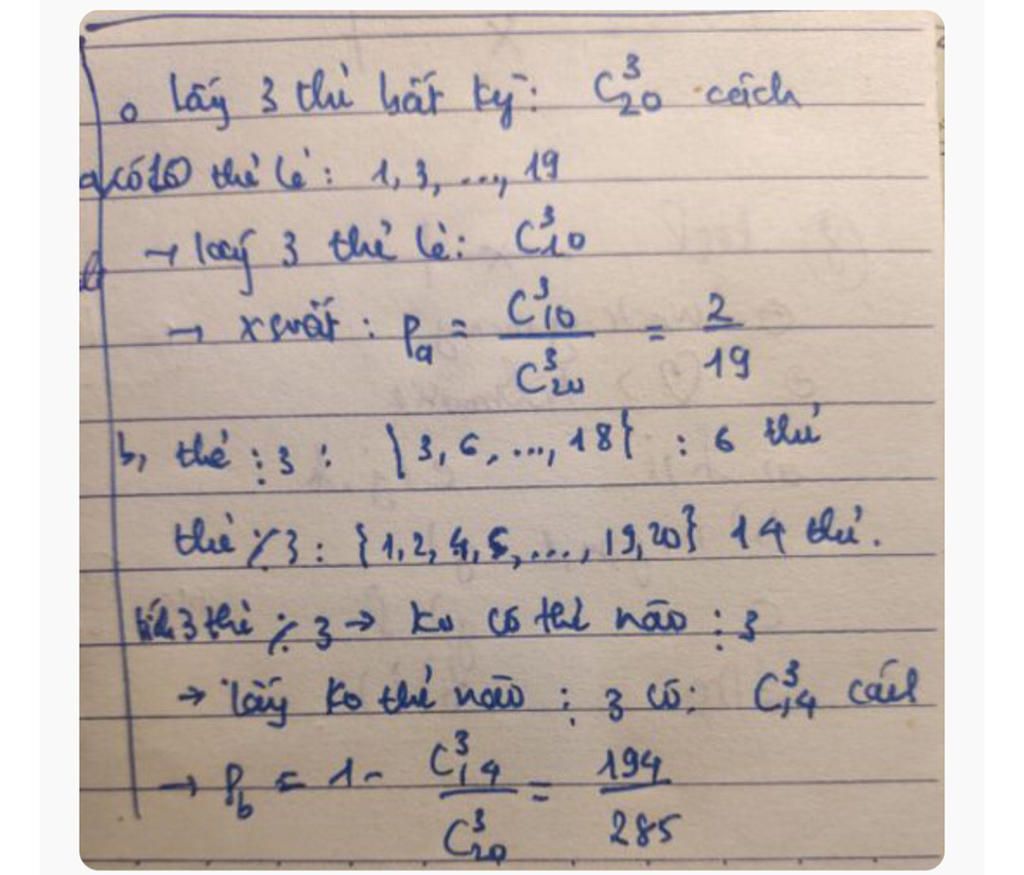 o lấy 3 thẻ bất kỳ: C³₂₀ cách
a, có 10 thẻ lẻ: 1, 3, ..., 19
→ lấy 3 thẻ lẻ: C³₁₀
→ xsuất: Pₐ = C³₁₀ / C³₂₀ = 2/19
b, thẻ ⋮ 3: {3, 6, ..., 18} : 6 thẻ
thẻ ⋮̸ 3: {1, 2, 4, 5, ..., 19, 20} 14 thẻ.
3 thẻ ⋮̸ 3 → ko có thẻ nào ⋮ 3
→ lấy ko thẻ nào ⋮ 3 có: C³₁₄ cách
→ P_b = 1 - C³₁₄ / C³₂₀ = 194/285